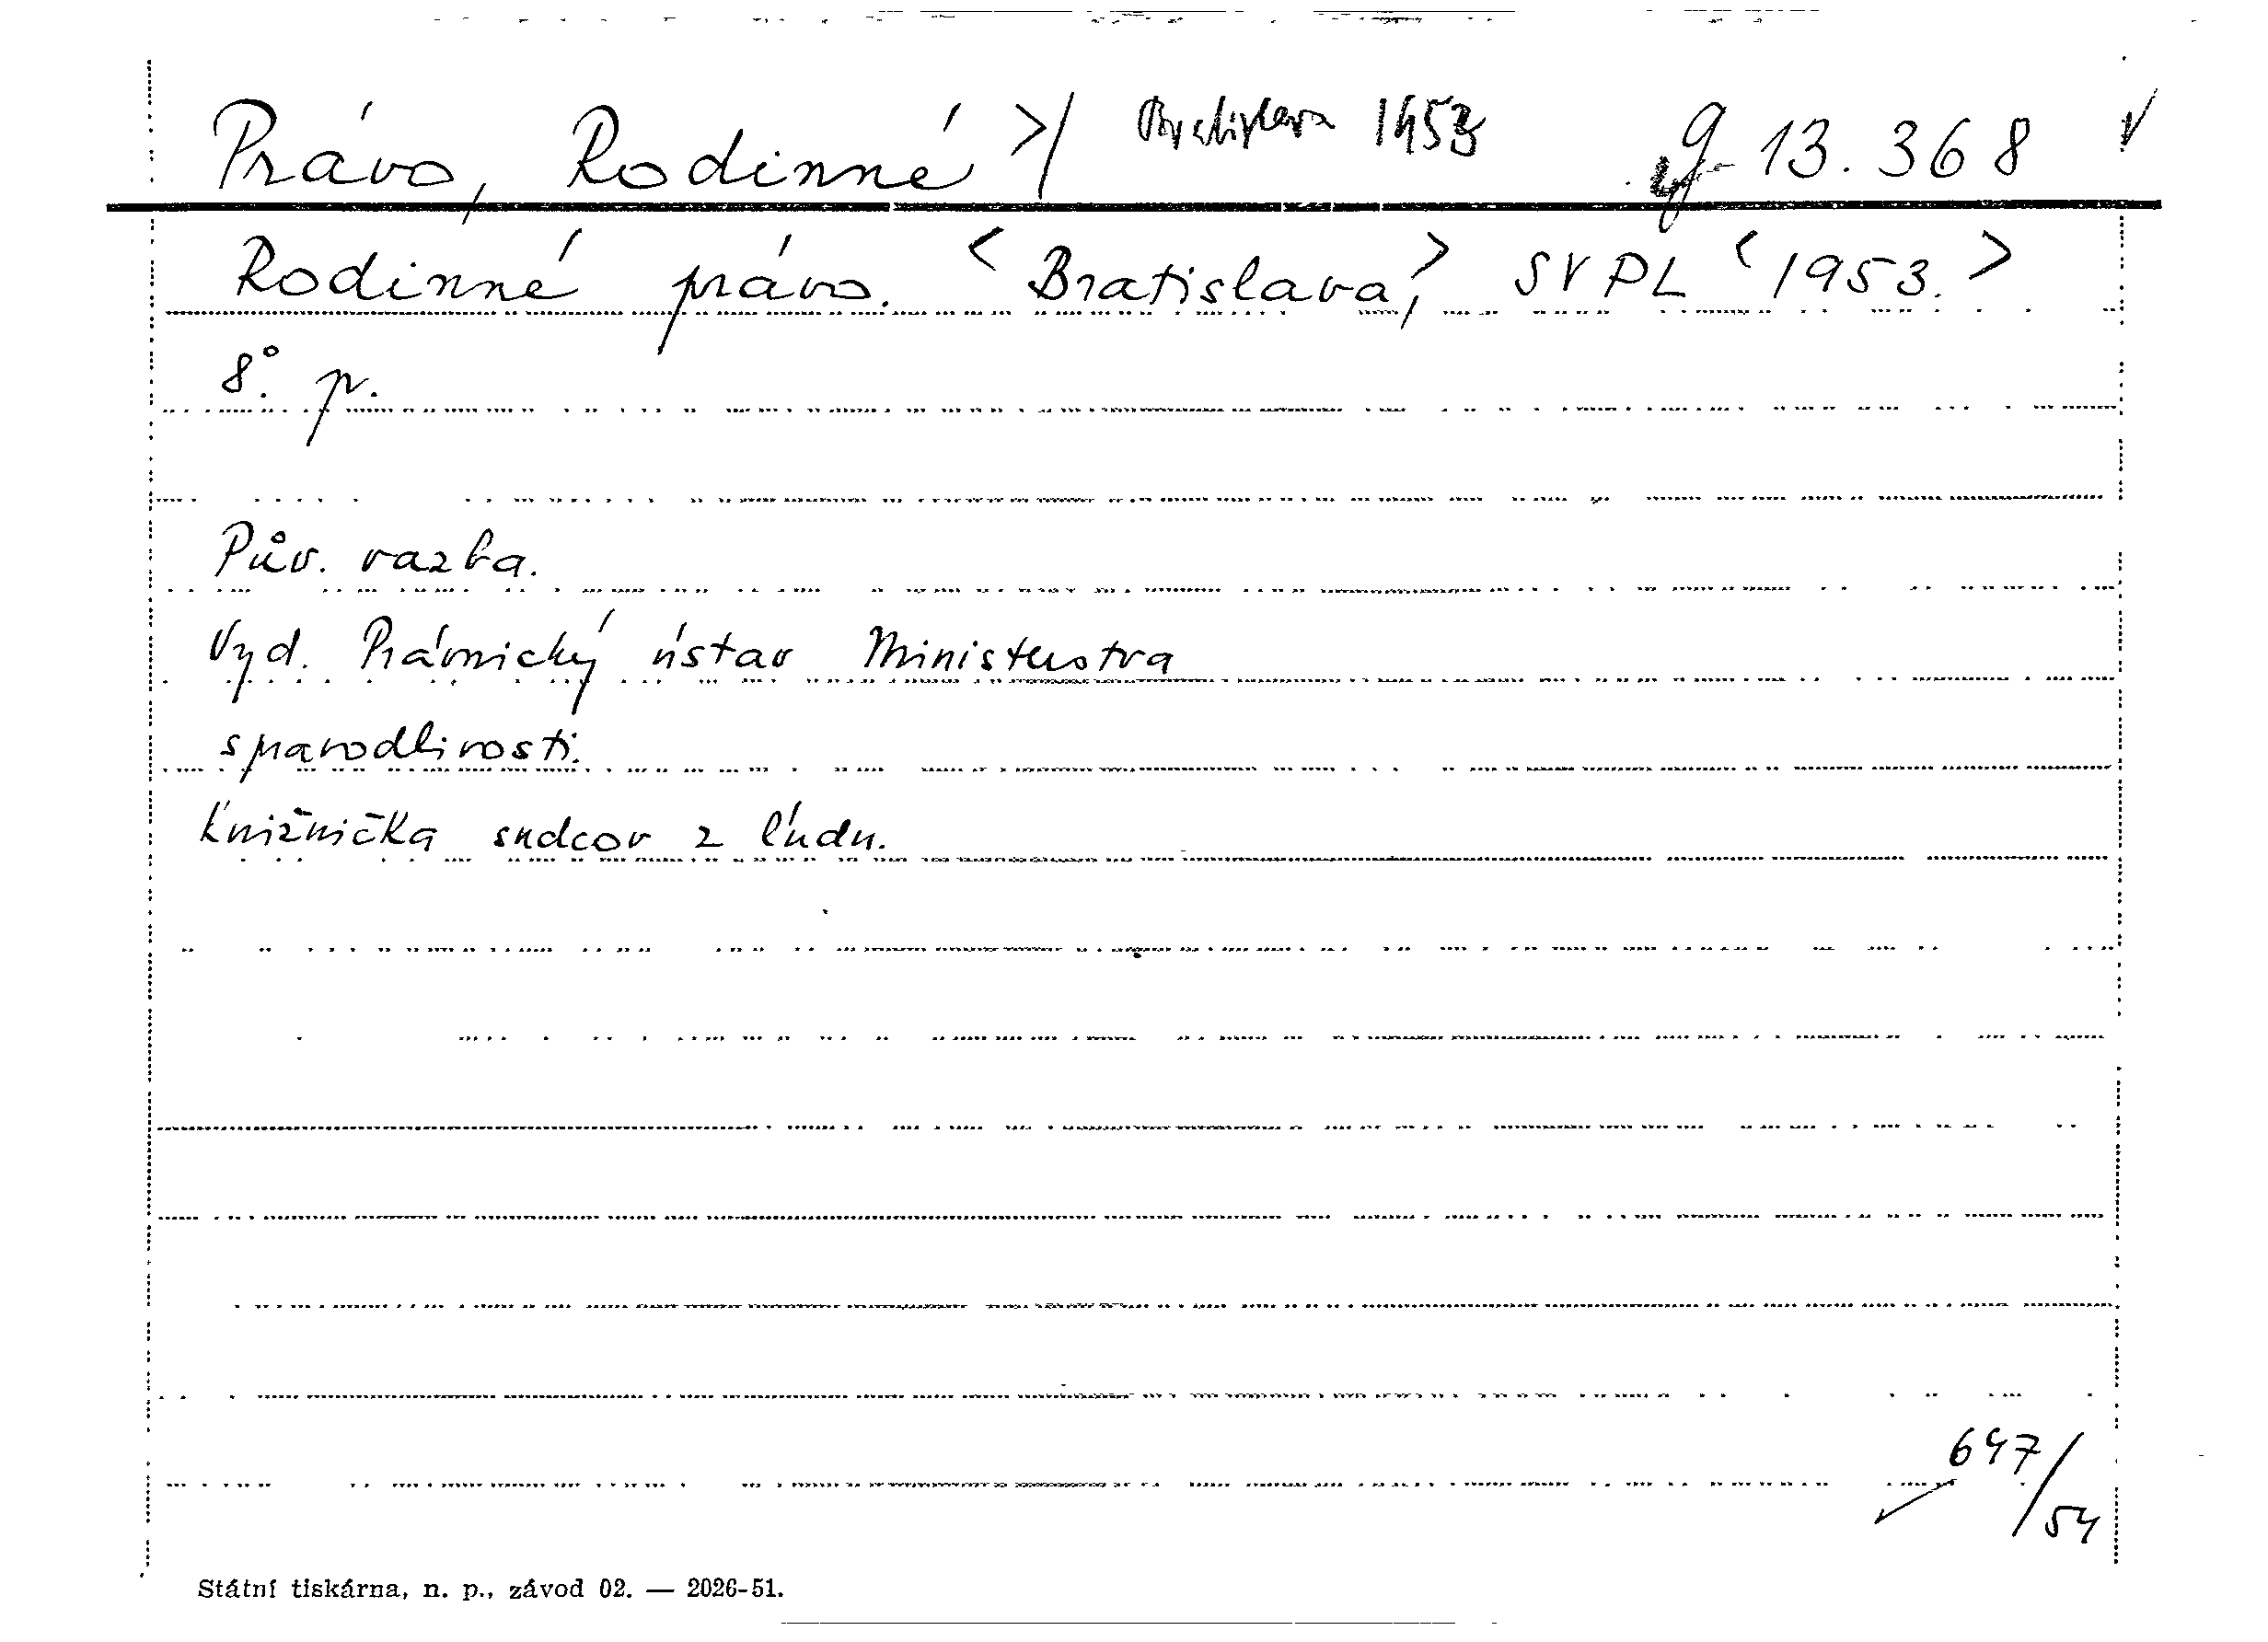 Právo, Rodinné >/ Bratislava 1953 g 13.368
Rodinné právo. <Bratislava,> SVPL <1953.>
8°. p.
Pův. vazba.
Vyd. Právnický ústav Ministerstva
spravodlivosti.
Knižnička sudcov z ľudu.
647/54
Státní tiskárna, n. p., závod 02. — 2026-51.